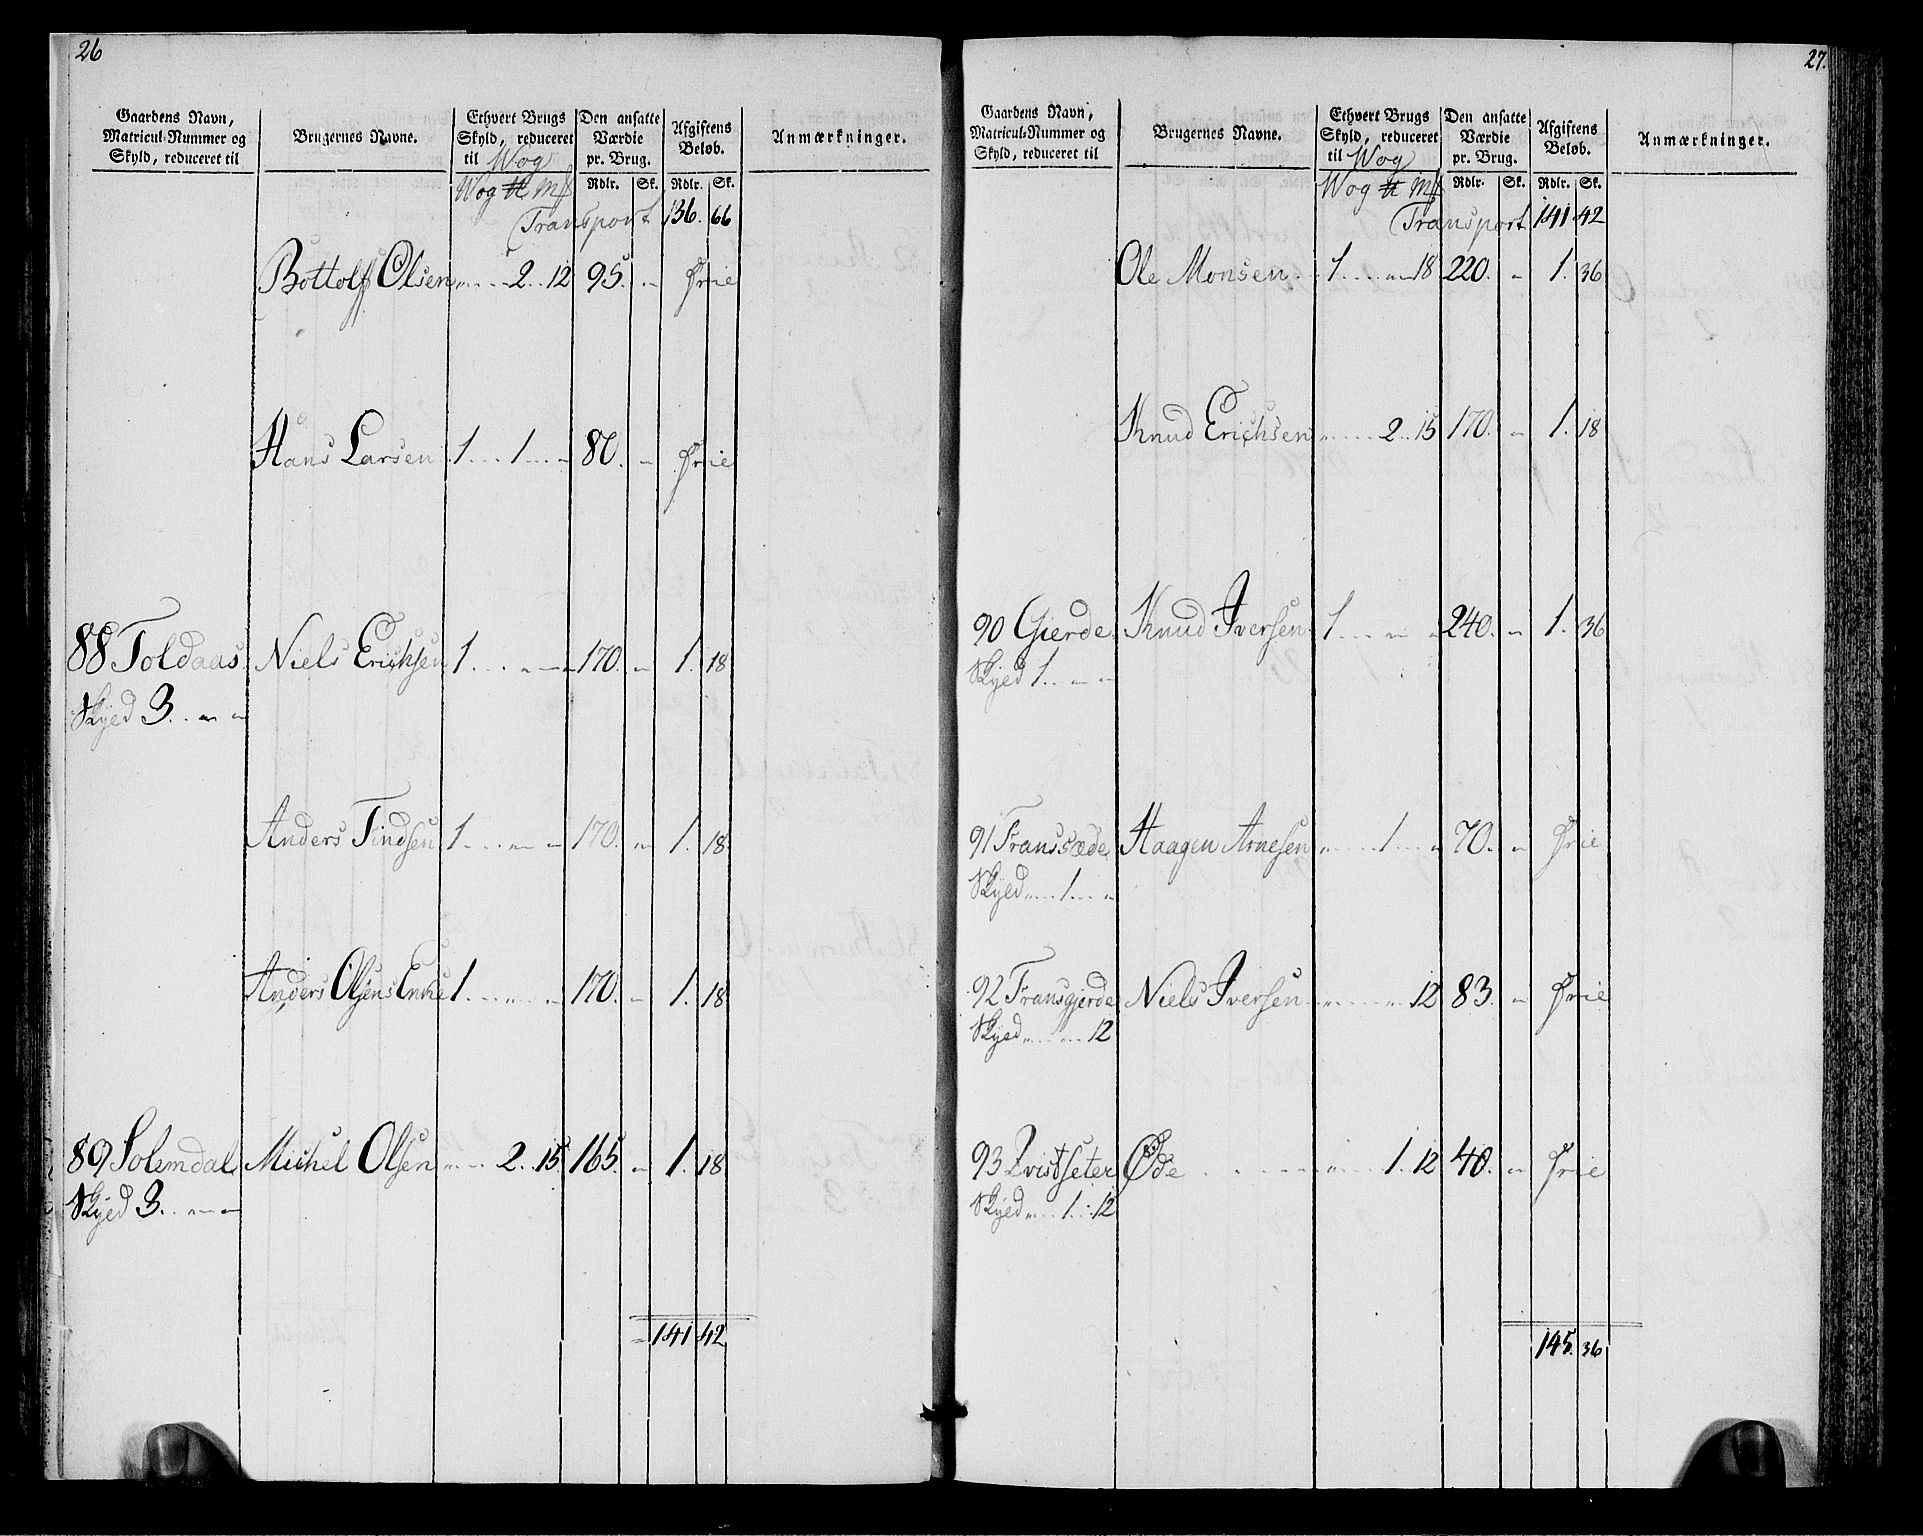 26
Gaardens Navn, Matricul-Nummer og Skyld, reduceret til
Brugernes Navne.
Ethvert Brugs Skyld, reduceret til Wog
Den ansatte Værdie pr. Brug.
Afgiftens Beløb.
Anmærkninger.
Wog ℔ Mk Rdlr. Sk. Rdlr. Sk.
Transport 136. 66
Bottolf Olsen „ 2 12 95. „ Frie
Hans Larsen 1 1 „ 80. „ Frie
88 Toldaas Niels Erichsen 1 „ „ 170. „ 1. 18
Skyed 3. „ „
Anders Findsen 1 „ „ 170. „ 1. 18
Anders Olsens Enke 1 „ „ 170. „ 1. 18
89 Solemdal Michel Olsen „ 2 15 165. „ 1. 18
Skyed 3. „ „
141 42
27.
Gaardens Navn, Matricul-Nummer og Skyld, reduceret til
Brugernes Navne.
Ethvert Brugs Skyld, reduceret til Wog
Den ansatte Værdie pr. Brug.
Afgiftens Beløb.
Anmærkninger.
Wog ℔ Mk Rdlr. Sk. Rdlr. Sk.
Transport 141 42
Ole Monsen 1 „ 18 220. „ 1. 36
Knud Erichsen „ 2 15 170. „ 1. 18
90 Gierde Knud Iversen 1 „ „ 240. „ 1. 36
Skyed 1. „ „
91 Transsæde Haagen Arnesen „ 1 „ 70. „ Frie
Skyed „ 1 „
92 Transgjerde Niels Iversen „ „ 12 83. „ Frie
Skyed „ „ 12
93 Qvistseter Øde „ 1 12 40. „ Frie
Skyed „ 1 12
145. 36